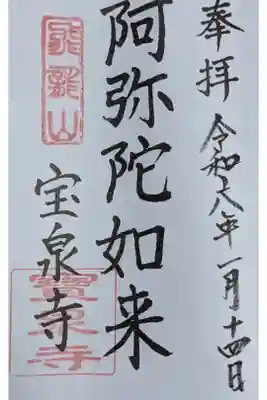 奉拝 令和六年一月十四日
阿弥陀如来
宝泉寺
寶泉寺